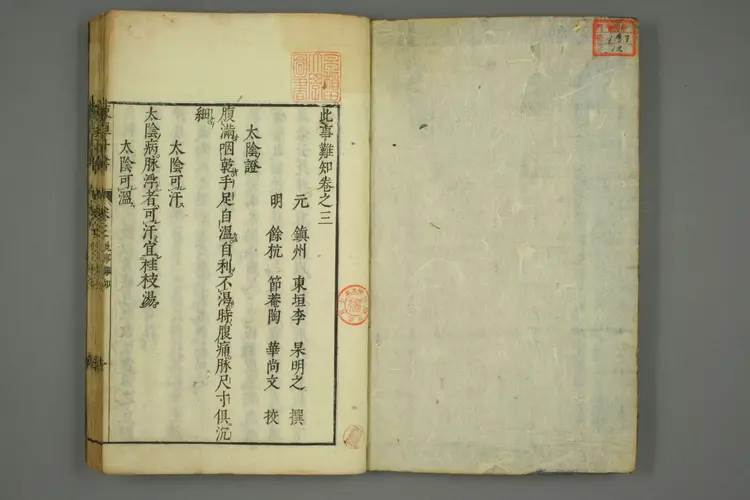 此事難知卷之三
元 鎮州 東垣李 杲明之 撰
明 餘杭 節菴陶 華尚文 挍
太陰證
腹滿咽乾手足自溫自利不渴時腹痛脉尺寸俱沉
細
太陰可汗
太陰病脉浮者可汗宜桂枝湯
太陰可溫
東垣十書